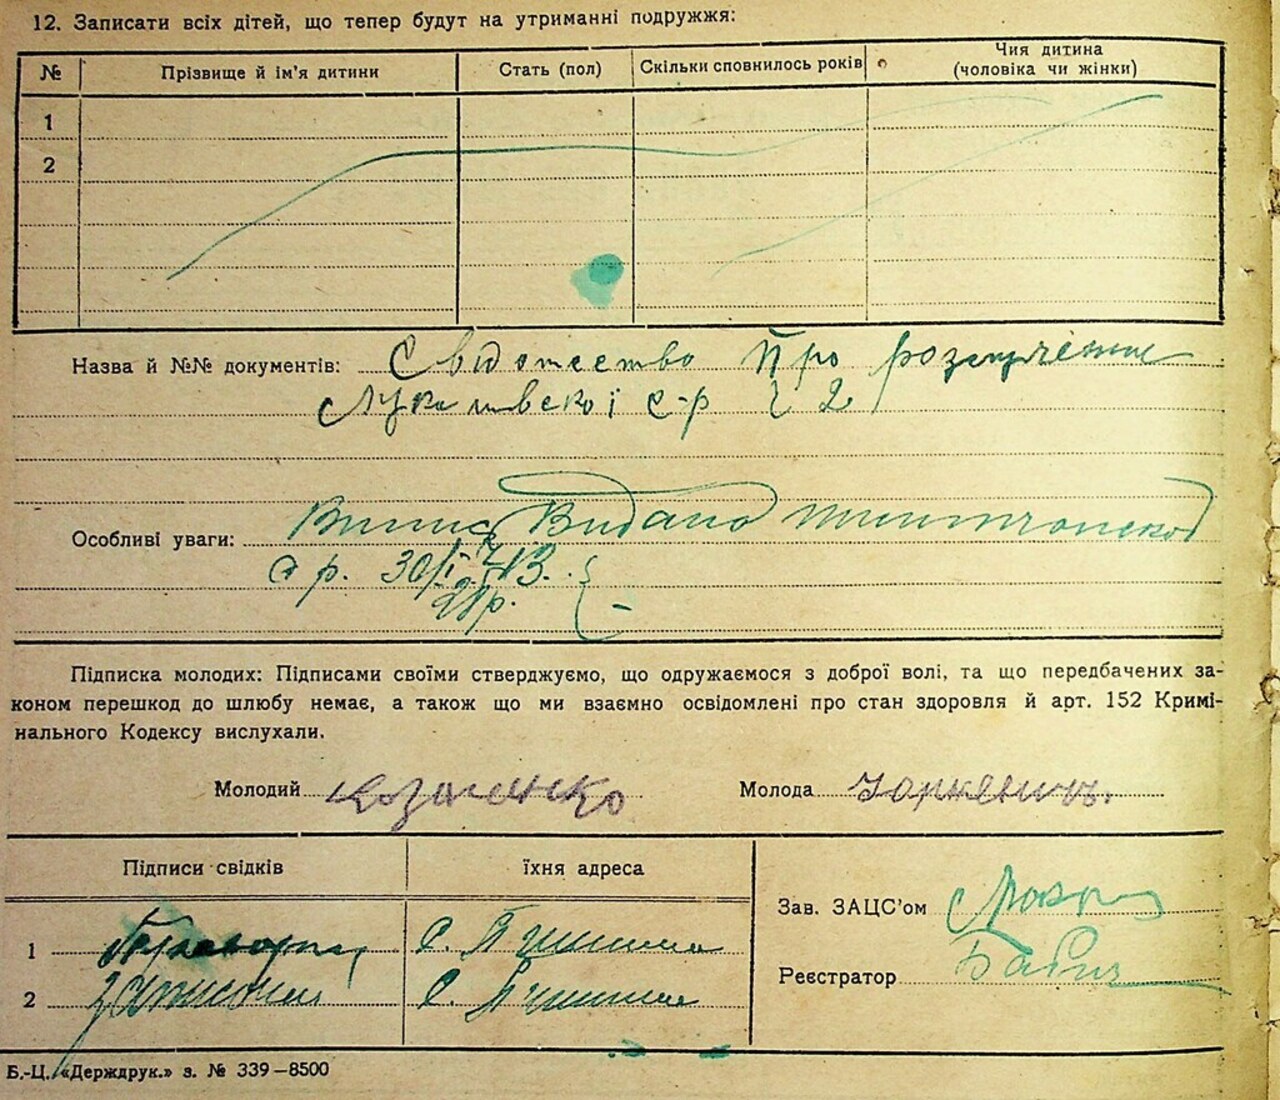 12. Записати всіх дітей, що тепер будут на утриманні подружжя:
№ Прізвище й ім'я дитини Стать (пол) Скільки сповнилось років Чия дитина (чоловіка чи жінки)
1
2
Назва й №№ документів: Свидотство Про розлучення
с-р ч 2
Особливі уваги: Випис Видано
с р. 30/І
Підписка молодих: Підписами своїми стверджуємо, що одружаємося з доброї волі, та що передбачених за-
коном перешкод до шлюбу немає, а також що ми взаємно освідомлені про стан здоровля й арт. 152 Кримі-
нального Кодексу вислухали.
Молодий Козаченко Молода
Підписи свідків їхня адреса
Зав. ЗАЦС'ом
1 с.
Реєстратор Бабич
2 с.
Б.-Ц. „Держдрук.» з. № 339—8500